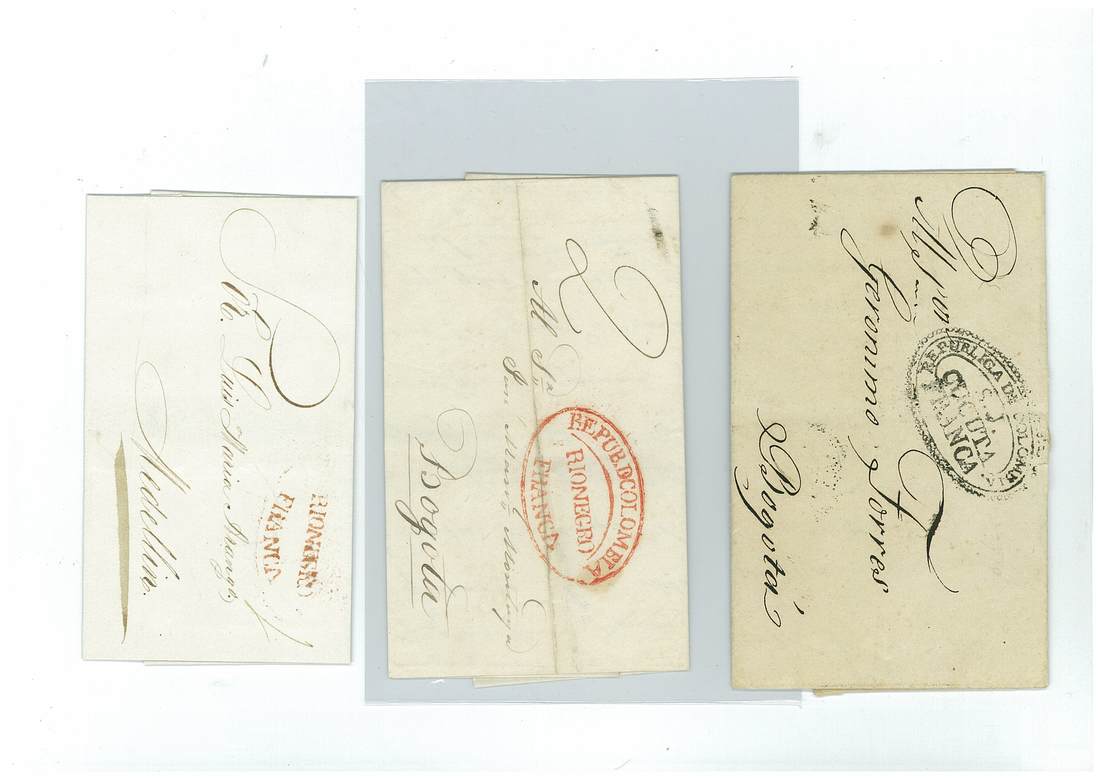 Sor. Luis Maria Arango
Medellin.
RIONEGRO
FRANCA
Al Sor.
Bogotá
REPUB.D.COLOMBIA
RIONEGRO
FRANCA
Al Sor.
Geronimo Torres
Bogotá
REPUBLICA DE COLOMBIA
S. J
CUCUTA
FRANCA